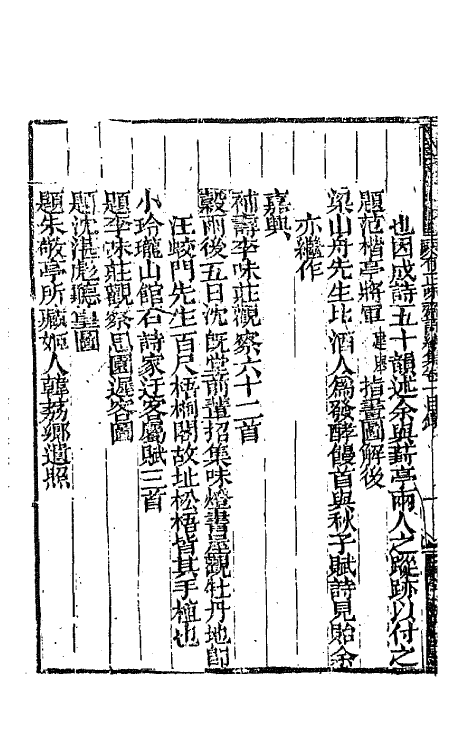 也因成詩五十韻述余與薊亭兩人之蹤跡以付之
題范楷亭將軍建康指畫圖解後
梁山舟先生比酒人為發酵饅首與秋子賦詩見貽余
亦繼作
嘉興
補壽李味莊觀察六十二首
穀雨後五日沈既堂前輩招集味燈書屋觀牡丹地即
汪蛟門先生百尺梧桐閣故址松梧皆其手植也
小玲瓏山館石詩家迂客屬賦三首
題李味莊觀察思園遲客圖
題沈湛彪聽皇圖
題朱敬亭所藏姬人韓荔鄉遺照